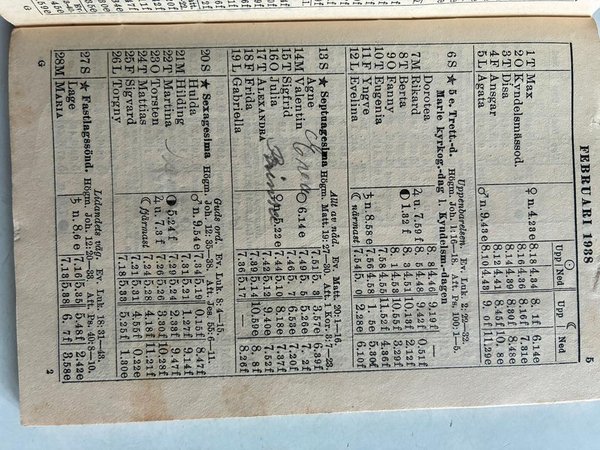 FEBRUARI 1938 5
☉ ☾
Upp Ned Upp Ned
1T Max ♀ n. 4.23e 8.18 4.34 8. 1f 6.14e
2O Kyndelsmässod. 8.16 4.36 8.16f 7.31e
3T Disa 8.14 4.39 8.30f 8.48e
4F Ansgar 8.12 4.41 8.45f 10. 8e
5L Agata ♂ n. 9.43e 8.10 4.43 9. 0f 11.29e
Uppenbarelsen. Ev. Luk. 2: 22—32.
6S ★ 5 e. Trett.-d. Högm. Joh. 1: 16—18. Aft. Ps. 100: 1—5.
Marie kyrkog.-dag l. Kyndelsm.-dagen
Dorotea 8. 8 4.46 9.19f —
7M Rikard ♃ u. 7.59f 8. 5 4.48 9.42f 0.51f
8T Berta 1.32f 8. 3 4.51 10.13f 2.10f
9O Fanny 8. 1 4.53 10.55f 3.29f
10T Eugenia 7.58
11F Yngve ♄ n. 8.58e 7.56 4.58 1. 5e 5.30f
12L Evelina ☾närmast 7.54 5. 0 2.28e 6.10f
Allt av nåd. Ev. Matt. 20: 1—16.
13S ★ Septuagesima Högm. Matt. 19: 27—30. Aft. 1 Kor. 3: 7—23.
Agne 7.51 5. 3 3.57e 6.39f
14M Valentin 6.14e 7.49 5. 5 5.26e 7. 2f
15T Sigfrid 7.46 5. 7 6.53e 7.20f
16O Julia ♀ n. 5.22e 7.44 5.10 8.17e 7.37f
17T ALEXANDRA 7.42 5.12 9.40e 7.52f
18F Frida 7.39 5.14 10.59e 8. 8f
19L Gabriella 7.36 5.17 — 8.26f
Guds ord. Ev. Luk. 8: 4—15.
20S ★ Sexagesima Högm. Joh. 12: 35—38. Aft. Jes.
Hulda ♂ n. 9.54e 7.34 5.19 0.15f 8.47f
21M Hilding 7.31 5.21 1.27f 9.14f
22T Martina 5.24f 7.29 5.24 2.33f 9.47f
23O Torsten ♃ u. 7. 3f 7.26 5.26 3.30f 10.28f
24T Mattias ☾fjärmast 7.24 5.28 4.18f 11.21f
25F Sigvard 7.21 5.31 4.55f 0.22e
26L Torgny 7.18 5.33 5.25f 1.30e
Lidandets väg. Ev. Luk. 18: 31—43.
27S ★ Fastlagssönd. Högm. Joh. 12: 20—33. Aft. Ps. 40: 8—10.
Lage ♄ n. 8.6e 7.16 5.35 5.48f 2.42e
28M MARIA 7.13 5.38 6. 7f 3.58e
G 2